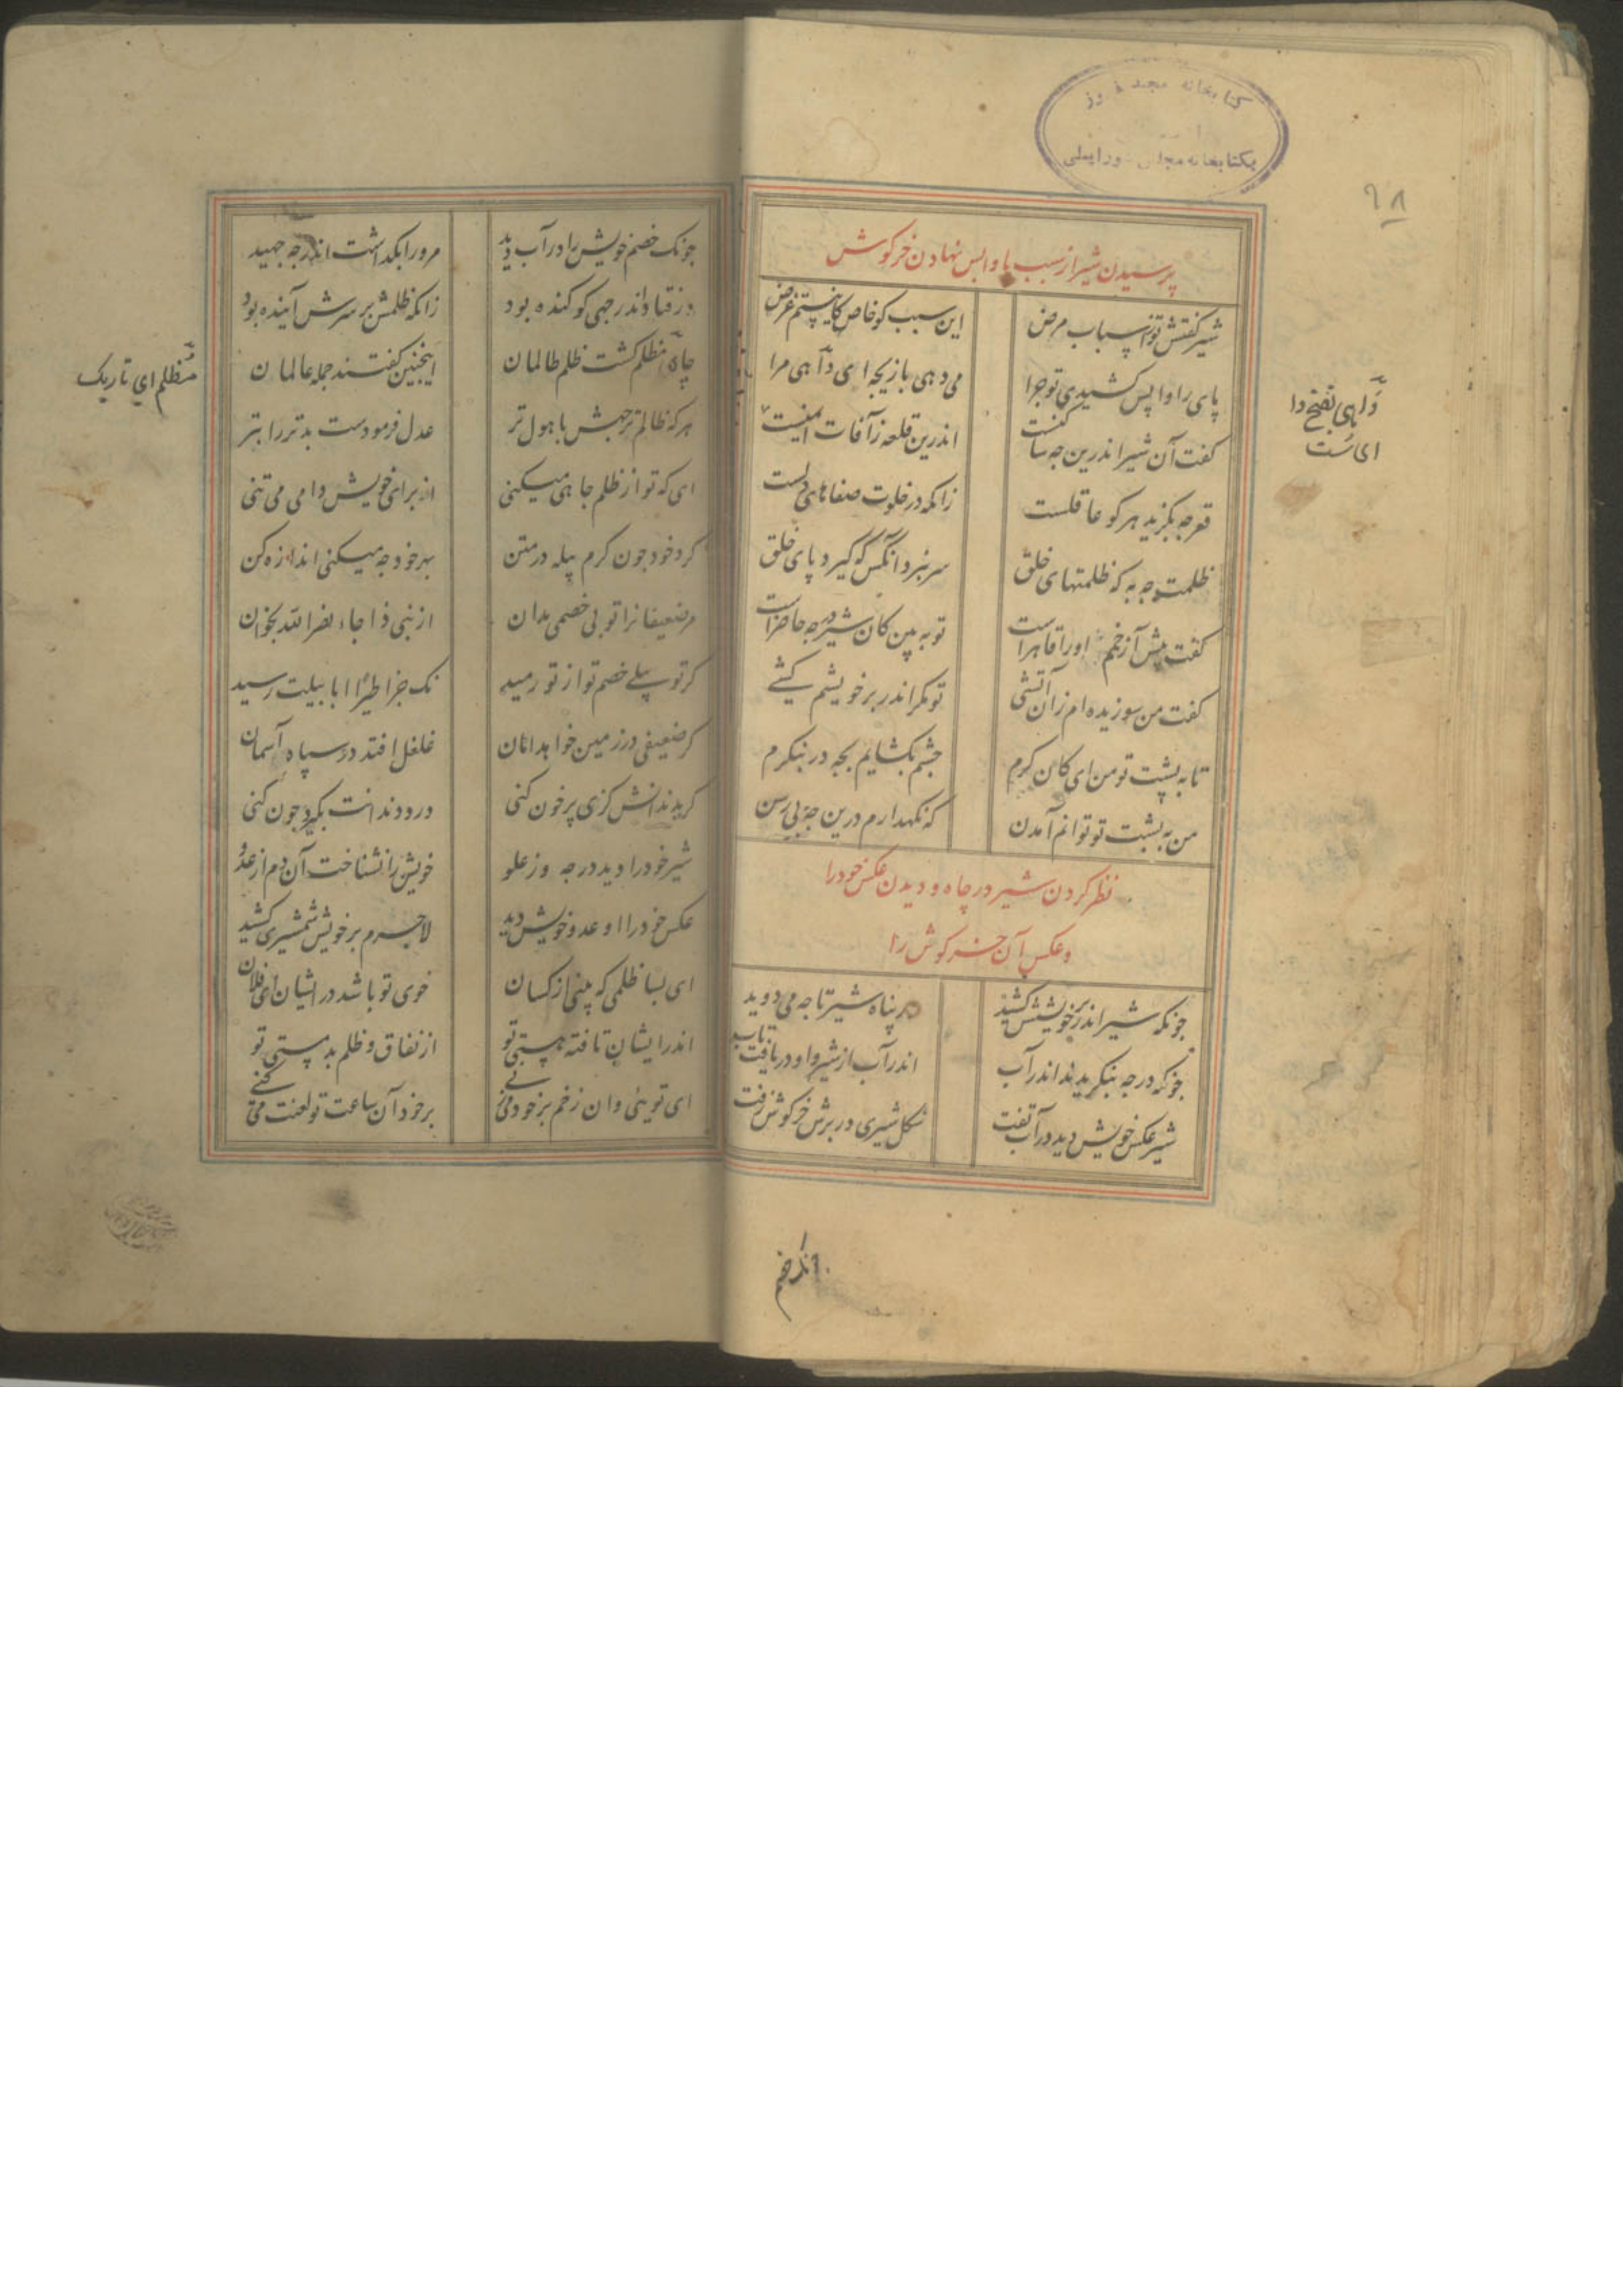 کتابخانه مجد
۶۸
پرسیدن شیر از سبب پا واپس نهادن خرکوش
شیر کفتش تو ز اسباب مرض
این سبب کو خاص کاینستم غرض
پای را واپس کشیدی تو جرا
می دهی بازیجه ای داهی مرا
داهی بفتح دا
کفت آن شیر اندرین جه ساکنست
اندرین قلعه ز آفات ایمنست
قعر جه بکزید هر کو عاقلست
زانکه در خلوت صفاهای دلست
ظلمت جه به که ظلمتهای خلق
سر نبرد آنکس که کیرد پای خلق
کفت پیش آ زخمم او را قاهرست
تو ببین کان شیر در جه حاضرست
کفت من سوزیده ام زان آتشی
تو مکر اندر بر خویشم کشی
تا به پشت تو من ای کان کرم
جشم بکشایم بجه در بنکرم
من به پشت تو توانم آمدن
که نکهدارم درین جه بی رسن
نظر کردن شیر در چاه و دیدن عکس خود را
و عکس آن خرکوش را
جونکه شیر اندر بر خویشش کشید
در پناه شیر تا جه می دوید
جونکه در جه بنکریدند اندر آب
اندر آب از شیر و او در تافت تاب
شیر عکس خویش دید در آب تفت
شکل شیری در برش خرکوش زفت
جونک خصم خویش را در آب دید
مرورا بکذاشت اندر جه جهید
در فتاد اندر جهی کو کنده بود
زانکه ظلمش بر سرش آینده بود
چاه مظلم کشت ظلم ظالمان
اینجنین کفتند جمله عالمان
مظلم ای تاریک
هر که ظالم تر جهش با هول تر
عدل فرمودست بدتر را بتر
ای که تو از ظلم جاهی میکنی
از برای خویش دامی می تنی
کرد خود جون کرم پیله در متن
بهر خود جه میکنی اندازه کن
مر ضعیفانرا تو بی خصمی مدان
از نبی ذا جاء نصر الله بخوان
کر تو پیلی خصم تو از تو رمید
نک جزا طیرا ابابیلت رسید
کر ضعیفی در زمین خواهد امان
غلغل افتد در سپاه آسمان
کر بدندانش کزی پر خون کنی
درد دندانت بکیرد جون کنی
شیر خود را دید در جه وز غلو
خویش را نشناخت آن دم از عدو
عکس خود را او عدو خویش دید
لاجرم بر خویش شمشیری کشید
ای بسا ظلمی که بینی از کسان
خوی تو باشد در ایشان ای فلان
اندر ایشان تافته هستی تو
از نفاق و ظلم بد مستی تو
ای تویی وان زخم بر خود می زنی
بر خود آن ساعت تو لعنت می کنی